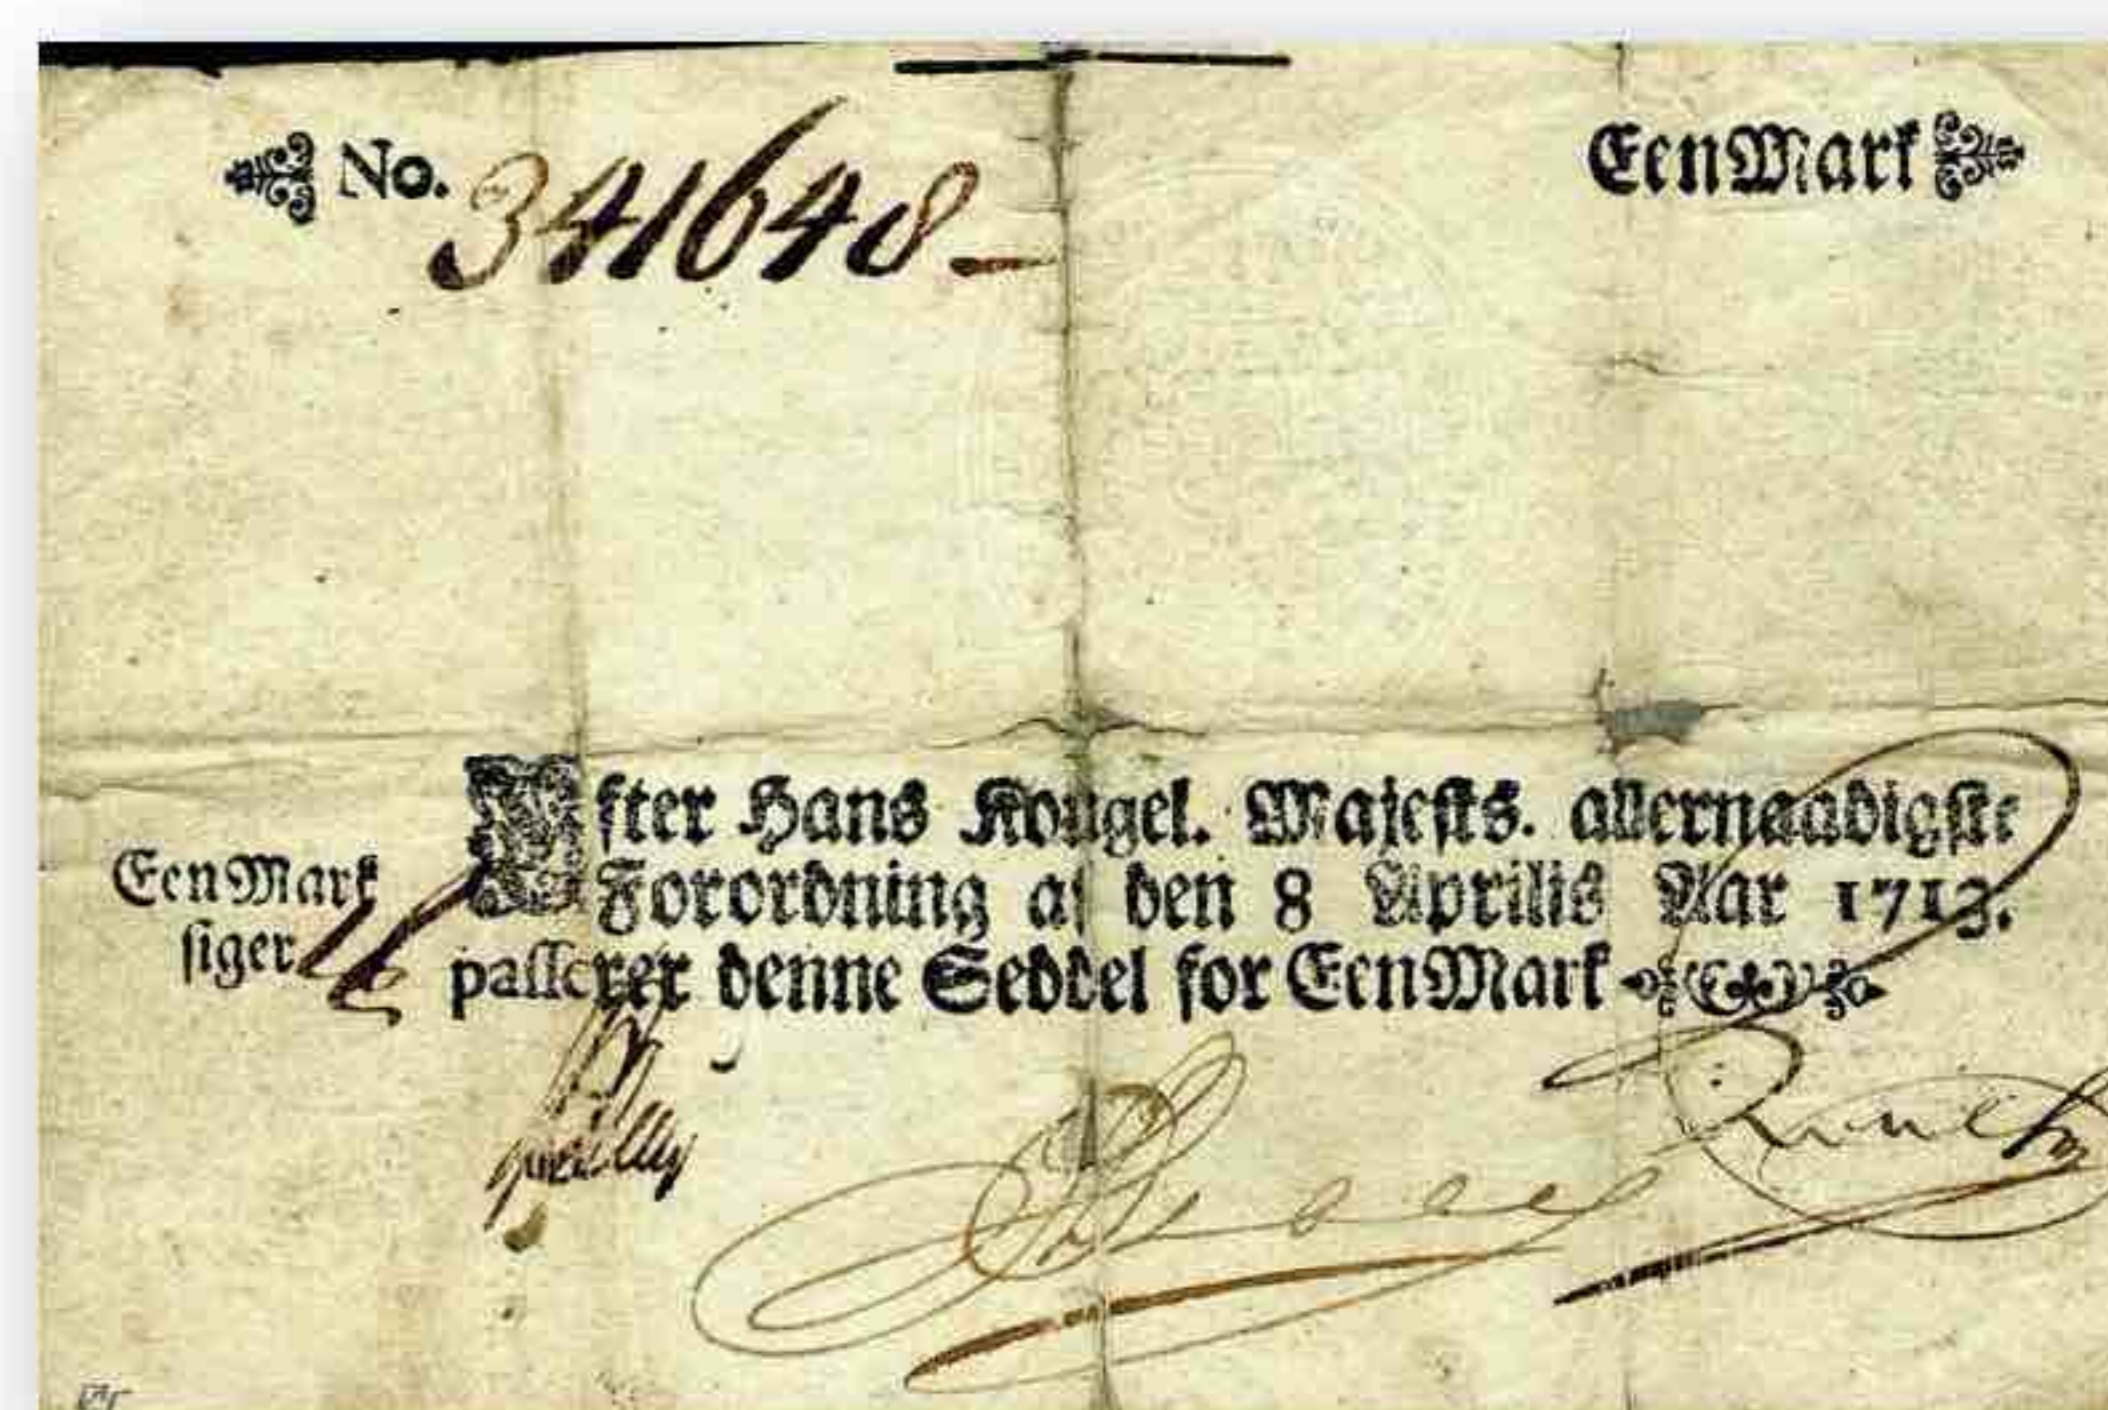 No. 341648
EenMark
Efter Hans Kongel. Majests. allernaadigste
Forordning af den 8 Aprilis Aar 1713.
passerer denne Seddel for EenMark
EenMark
siger